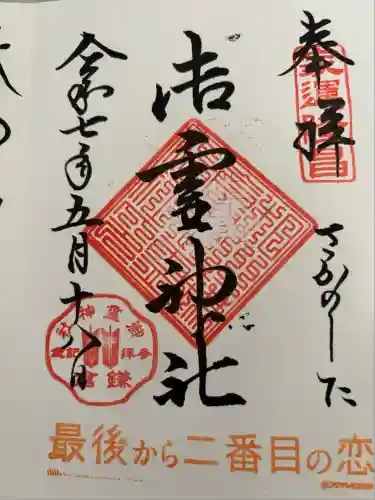 奉拝
さかのした
御霊神社
令和七年五月十八日
鎌倉
最後から二番目の恋